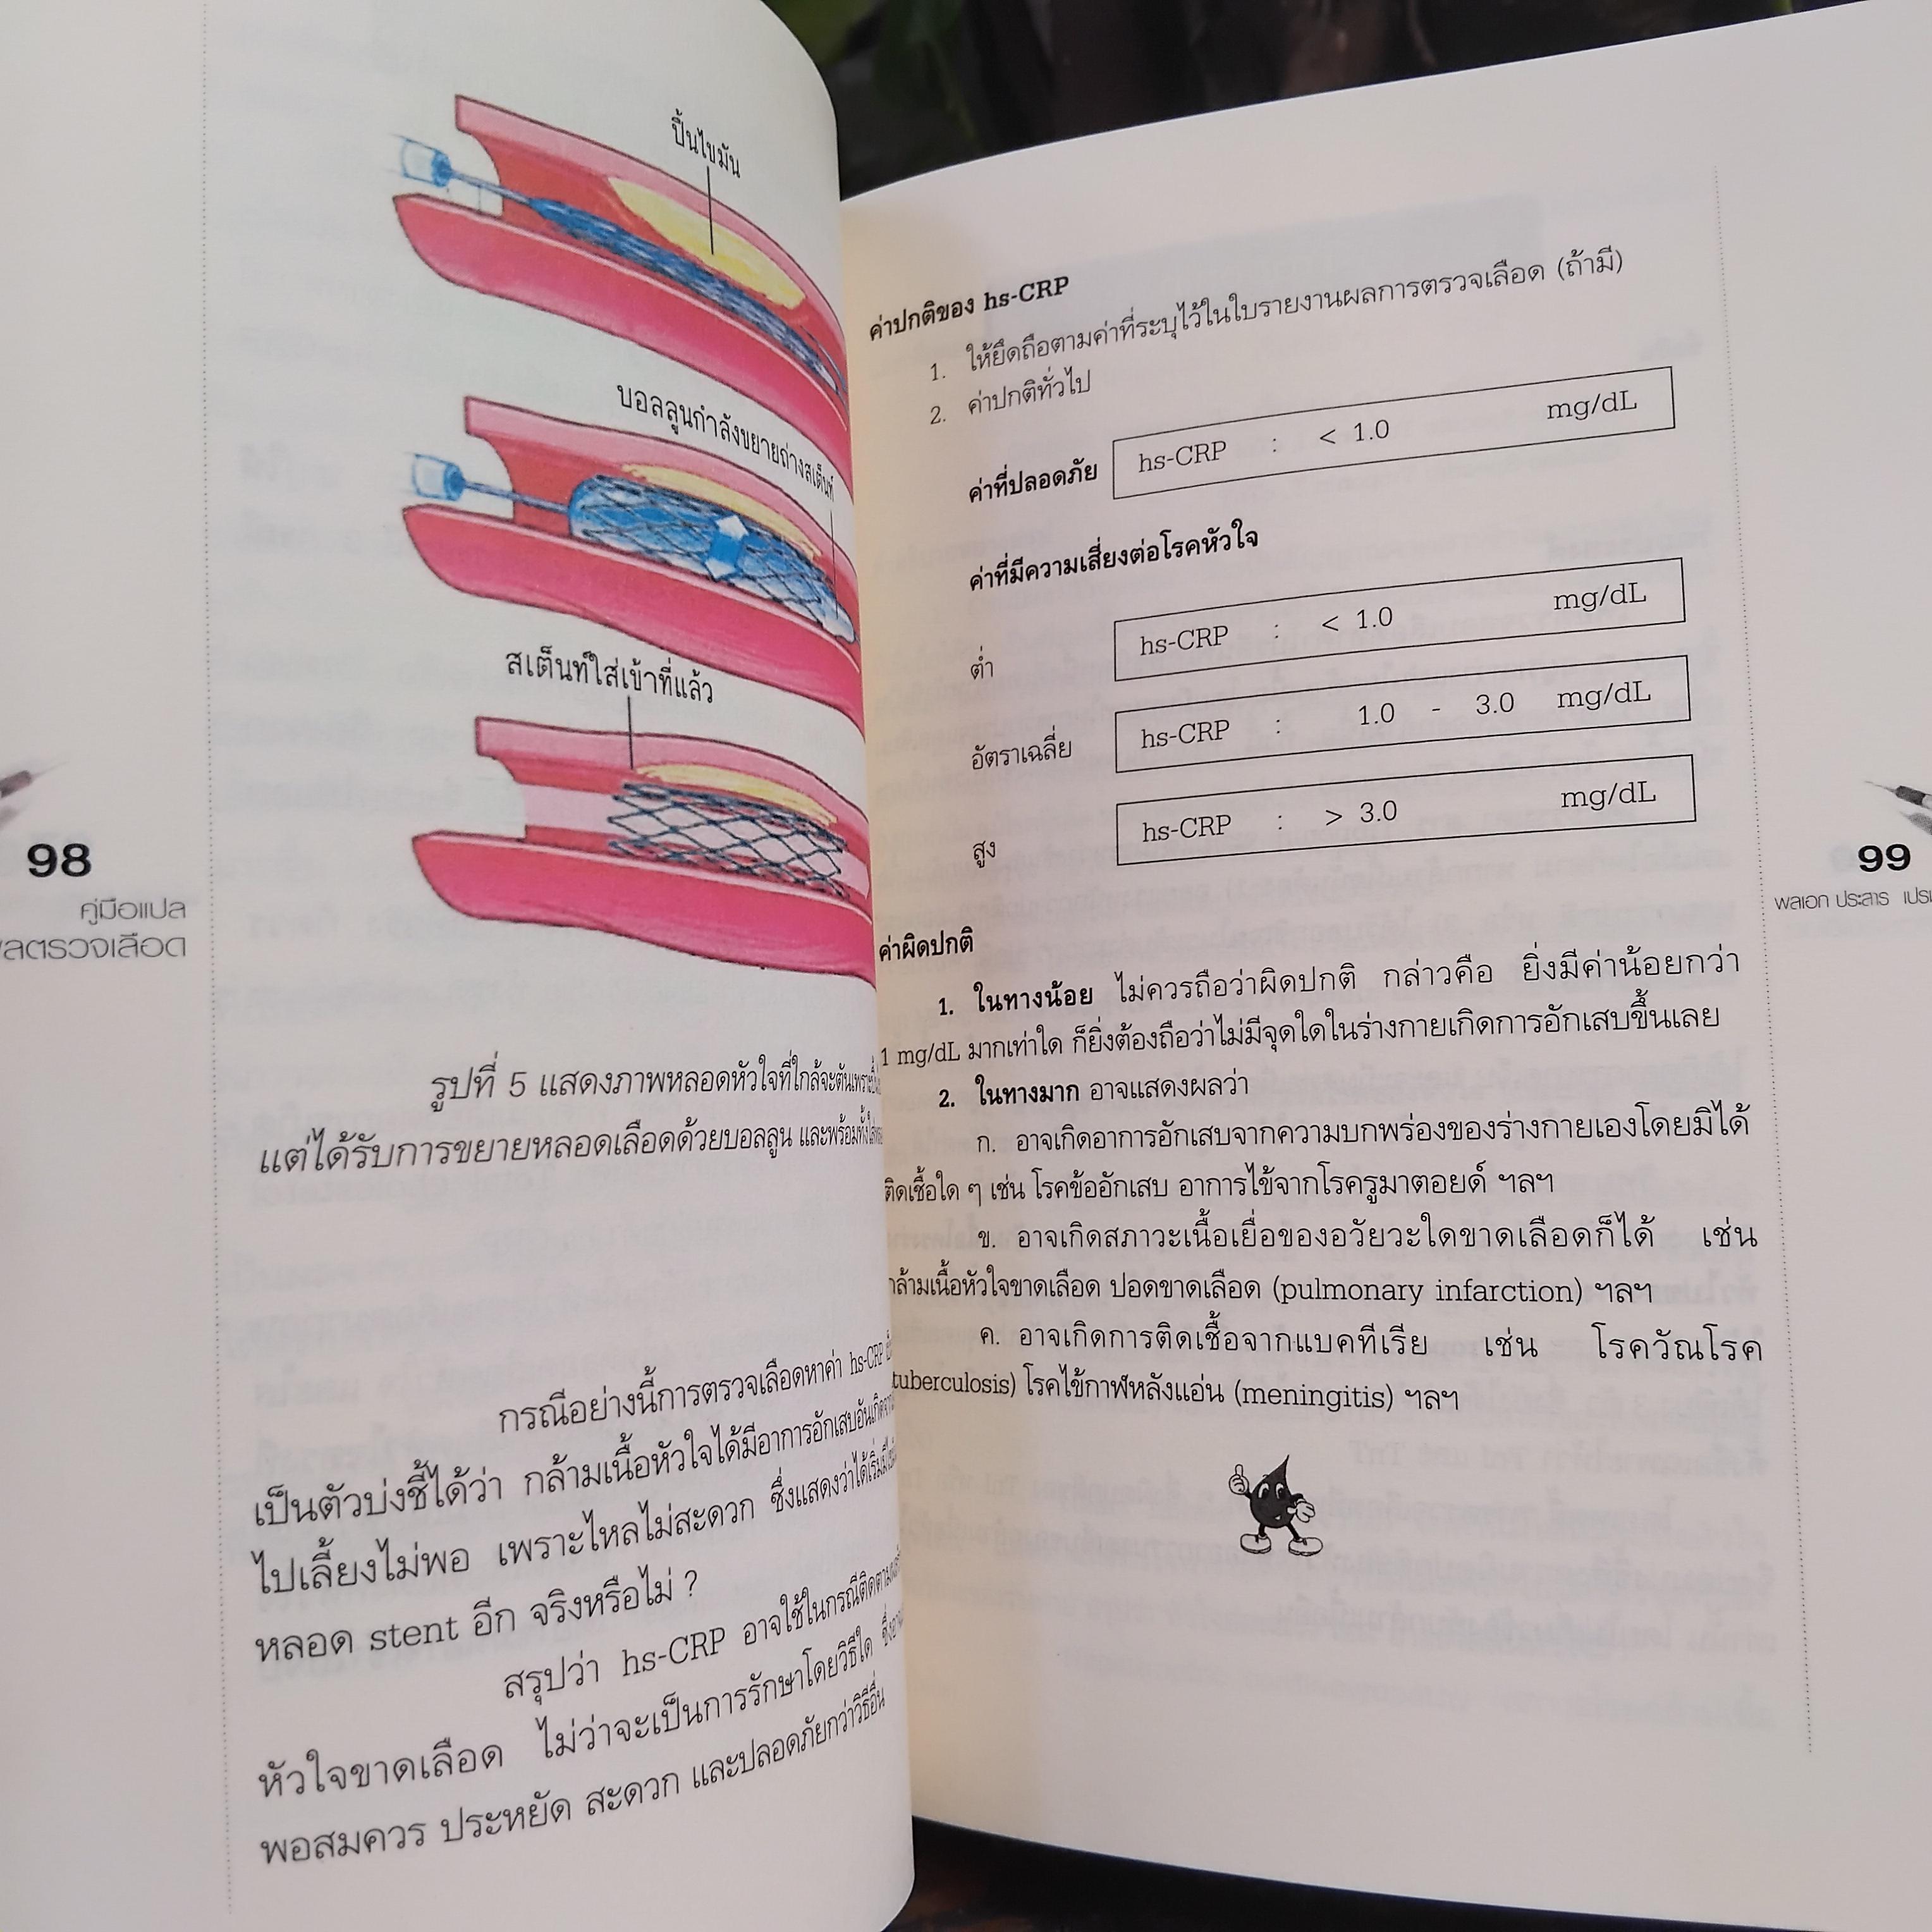 ปิ้นไขมัน
บอลลูนกำลังขยายถ่างสเต็นท์
สเต็นท์ใส่เข้าที่แล้ว
98
คู่มือแปล
ผลตรวจเลือด
รูปที่ 5 แสดงภาพหลอดหัวใจที่ใกล้จะตันเพราะ
แต่ได้รับการขยายหลอดเลือดด้วยบอลลูน และพร้อมทั้ง
กรณีอย่างนี้การตรวจเลือดหาค่า hs-CRP
เป็นตัวบ่งชี้ได้ว่า กล้ามเนื้อหัวใจได้มีอาการอักเสบอันเกิด
ไปเลี้ยงไม่พอ เพราะไหลไม่สะดวก ซึ่งแสดงว่าได้เริ่ม
หลอด stent อีก จริงหรือไม่ ?
สรุปว่า hs-CRP อาจใช้ในกรณีติดตาม
หัวใจขาดเลือด ไม่ว่าจะเป็นการรักษาโดยวิธีใด
พอสมควร ประหยัด สะดวก และปลอดภัยกว่าวิธีอื่น
ค่าปกติของ hs-CRP
1. ให้ยึดถือตามค่าที่ระบุไว้ในใบรายงานผลการตรวจเลือด (ถ้ามี)
2. ค่าปกติทั่วไป
ค่าที่ปลอดภัย hs-CRP : < 1.0 mg/dL
ค่าที่มีความเสี่ยงต่อโรคหัวใจ
ต่ำ hs-CRP : < 1.0 mg/dL
อัตราเฉลี่ย hs-CRP : 1.0 - 3.0 mg/dL
สูง hs-CRP : > 3.0 mg/dL
99
พลเอก ประสาร
ค่าผิดปกติ
1. ในทางน้อย ไม่ควรถือว่าผิดปกติ กล่าวคือ ยิ่งมีค่าน้อยกว่า
1 mg/dL มากเท่าใด ก็ยิ่งต้องถือว่าไม่มีจุดใดในร่างกายเกิดการอักเสบขึ้นเลย
2. ในทางมาก อาจแสดงผลว่า
ก. อาจเกิดอาการอักเสบจากความบกพร่องของร่างกายเองโดยมิได้
ติดเชื้อใด ๆ เช่น โรคข้ออักเสบ อาการไข้จากโรครูมาตอยด์ ฯลฯ
ข. อาจเกิดสภาวะเนื้อเยื่อของอวัยวะใดขาดเลือดก็ได้ เช่น
กล้ามเนื้อหัวใจขาดเลือด ปอดขาดเลือด (pulmonary infarction) ฯลฯ
ค. อาจเกิดการติดเชื้อจากแบคทีเรีย เช่น โรควัณโรค
tuberculosis) โรคไข้กาฬหลังแอ่น (meningitis) ฯลฯ